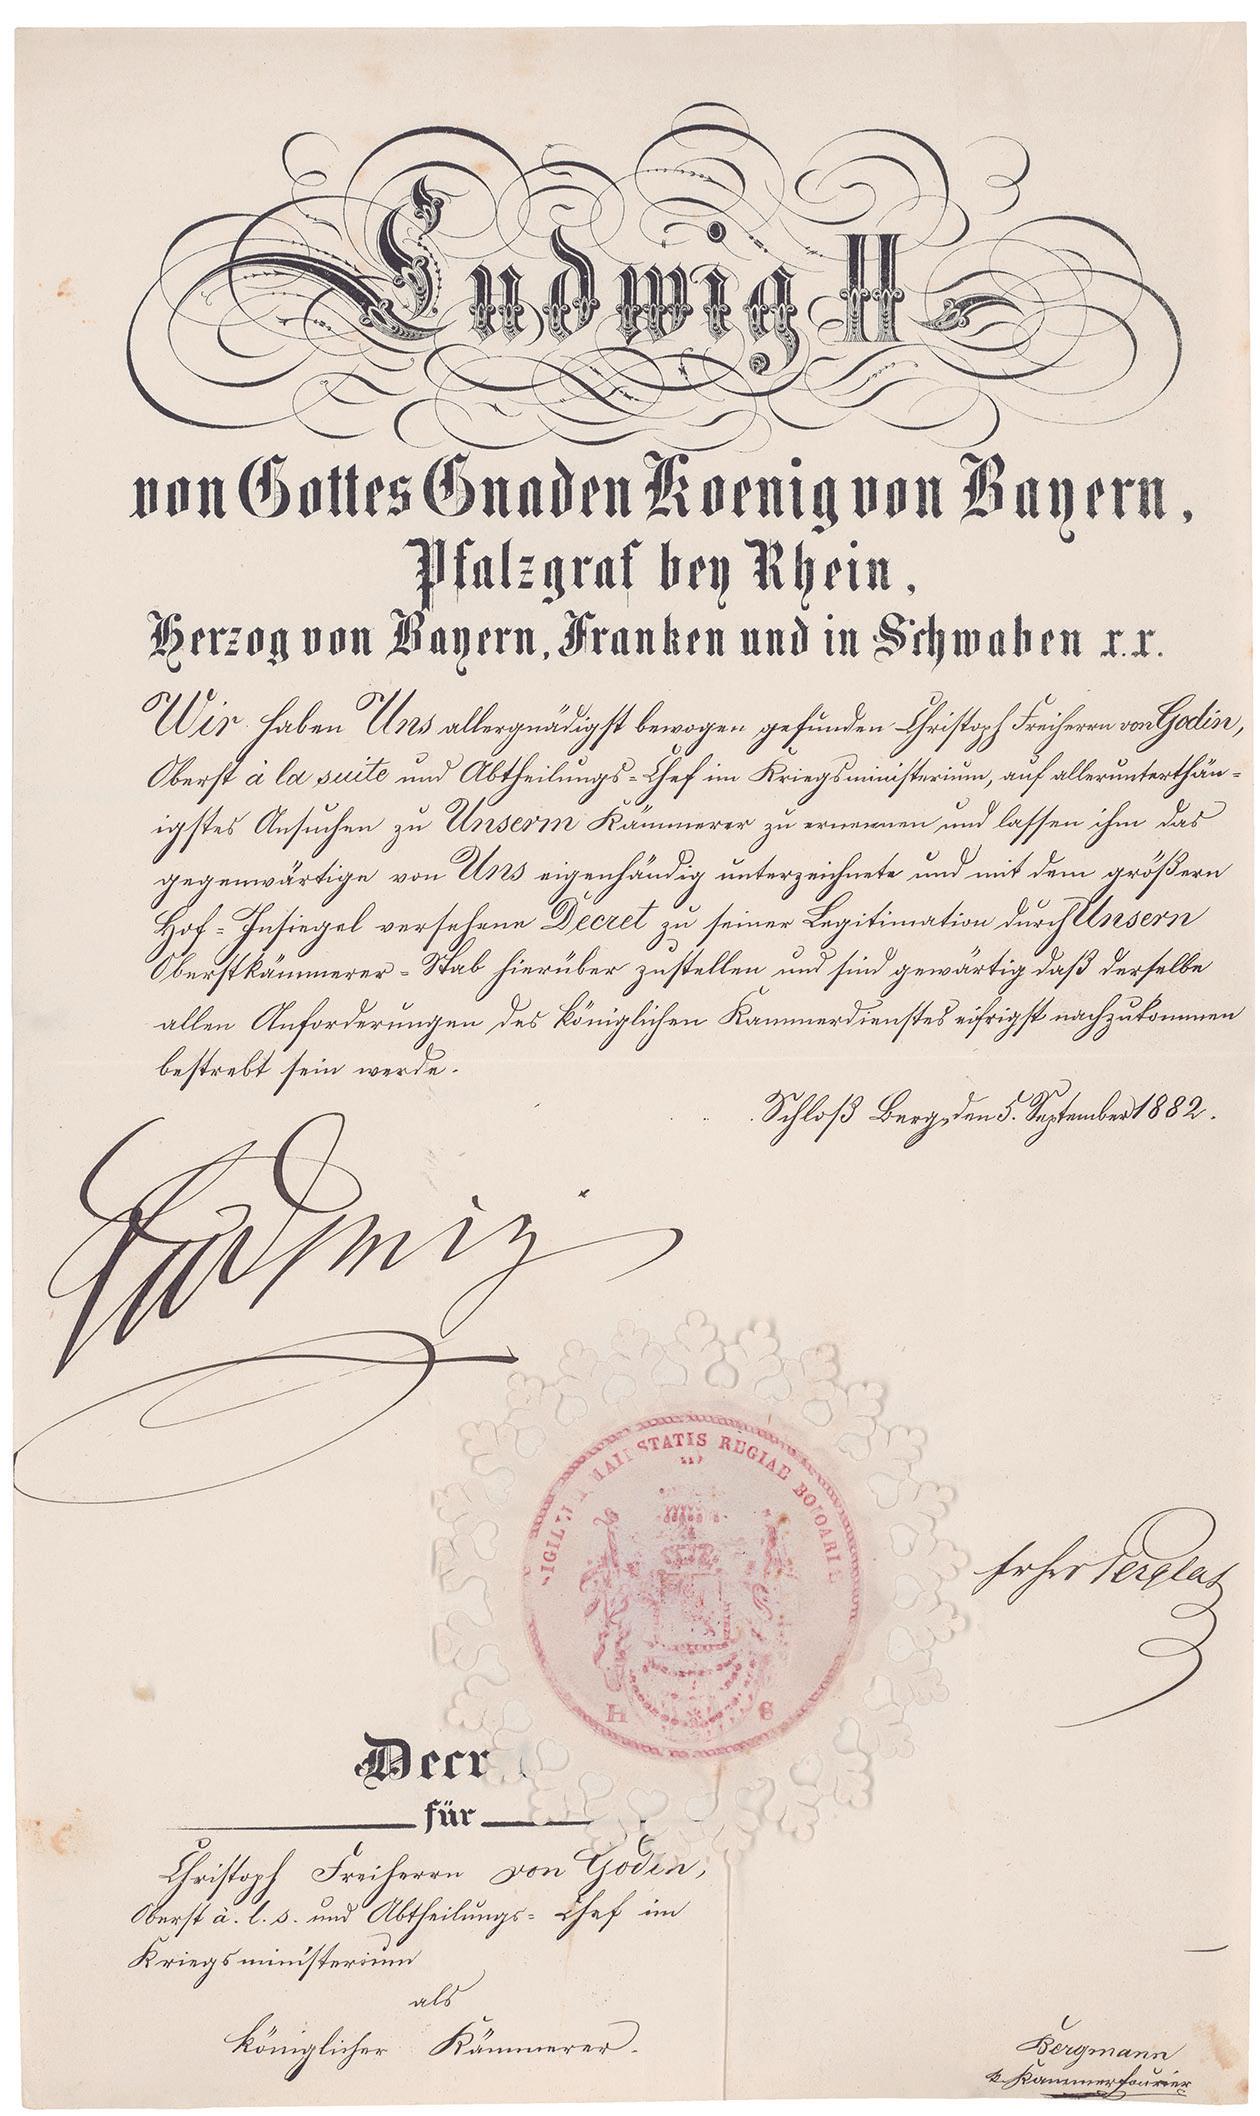 Ludwig II
von Gottes Gnaden Koenig von Bayern,
Pfalzgraf bey Rhein,
Herzog von Bayern, Franken und in Schwaben x.x.
Wir haben Uns allergnädigst bewogen gefunden Christoph Freiherrn von Godin,
Oberst à la suite und Abtheilungs-Chef im Kriegsministerium, auf allerunterthän-
igstes Ansuchen zu Unserm Kämmerer zu ernennen und lassen ihm das
gegenwärtige von Uns eigenhändig unterzeichnete und mit dem größern
Hof-Insiegel versehene Decret zu seiner Legitimation durch Unsern
Oberstkämmerer-Stab hierüber zustellen und sind gewärtig daß derselbe
allen Anforderungen des königlichen Kammerdienstes eifrigst nachzukommen
bestrebt sein werde.
Schloß Berg, den 5. September 1882.
Ludwig
MAIESTATIS REGIAE
H S
Decr
für
Christoph Freiherrn von Godin,
Oberst à. l. s. und Abtheilungs-Chef im
Kriegsministerium
als
königlicher Kämmerer.
Bergmann
k. Kammerfourier